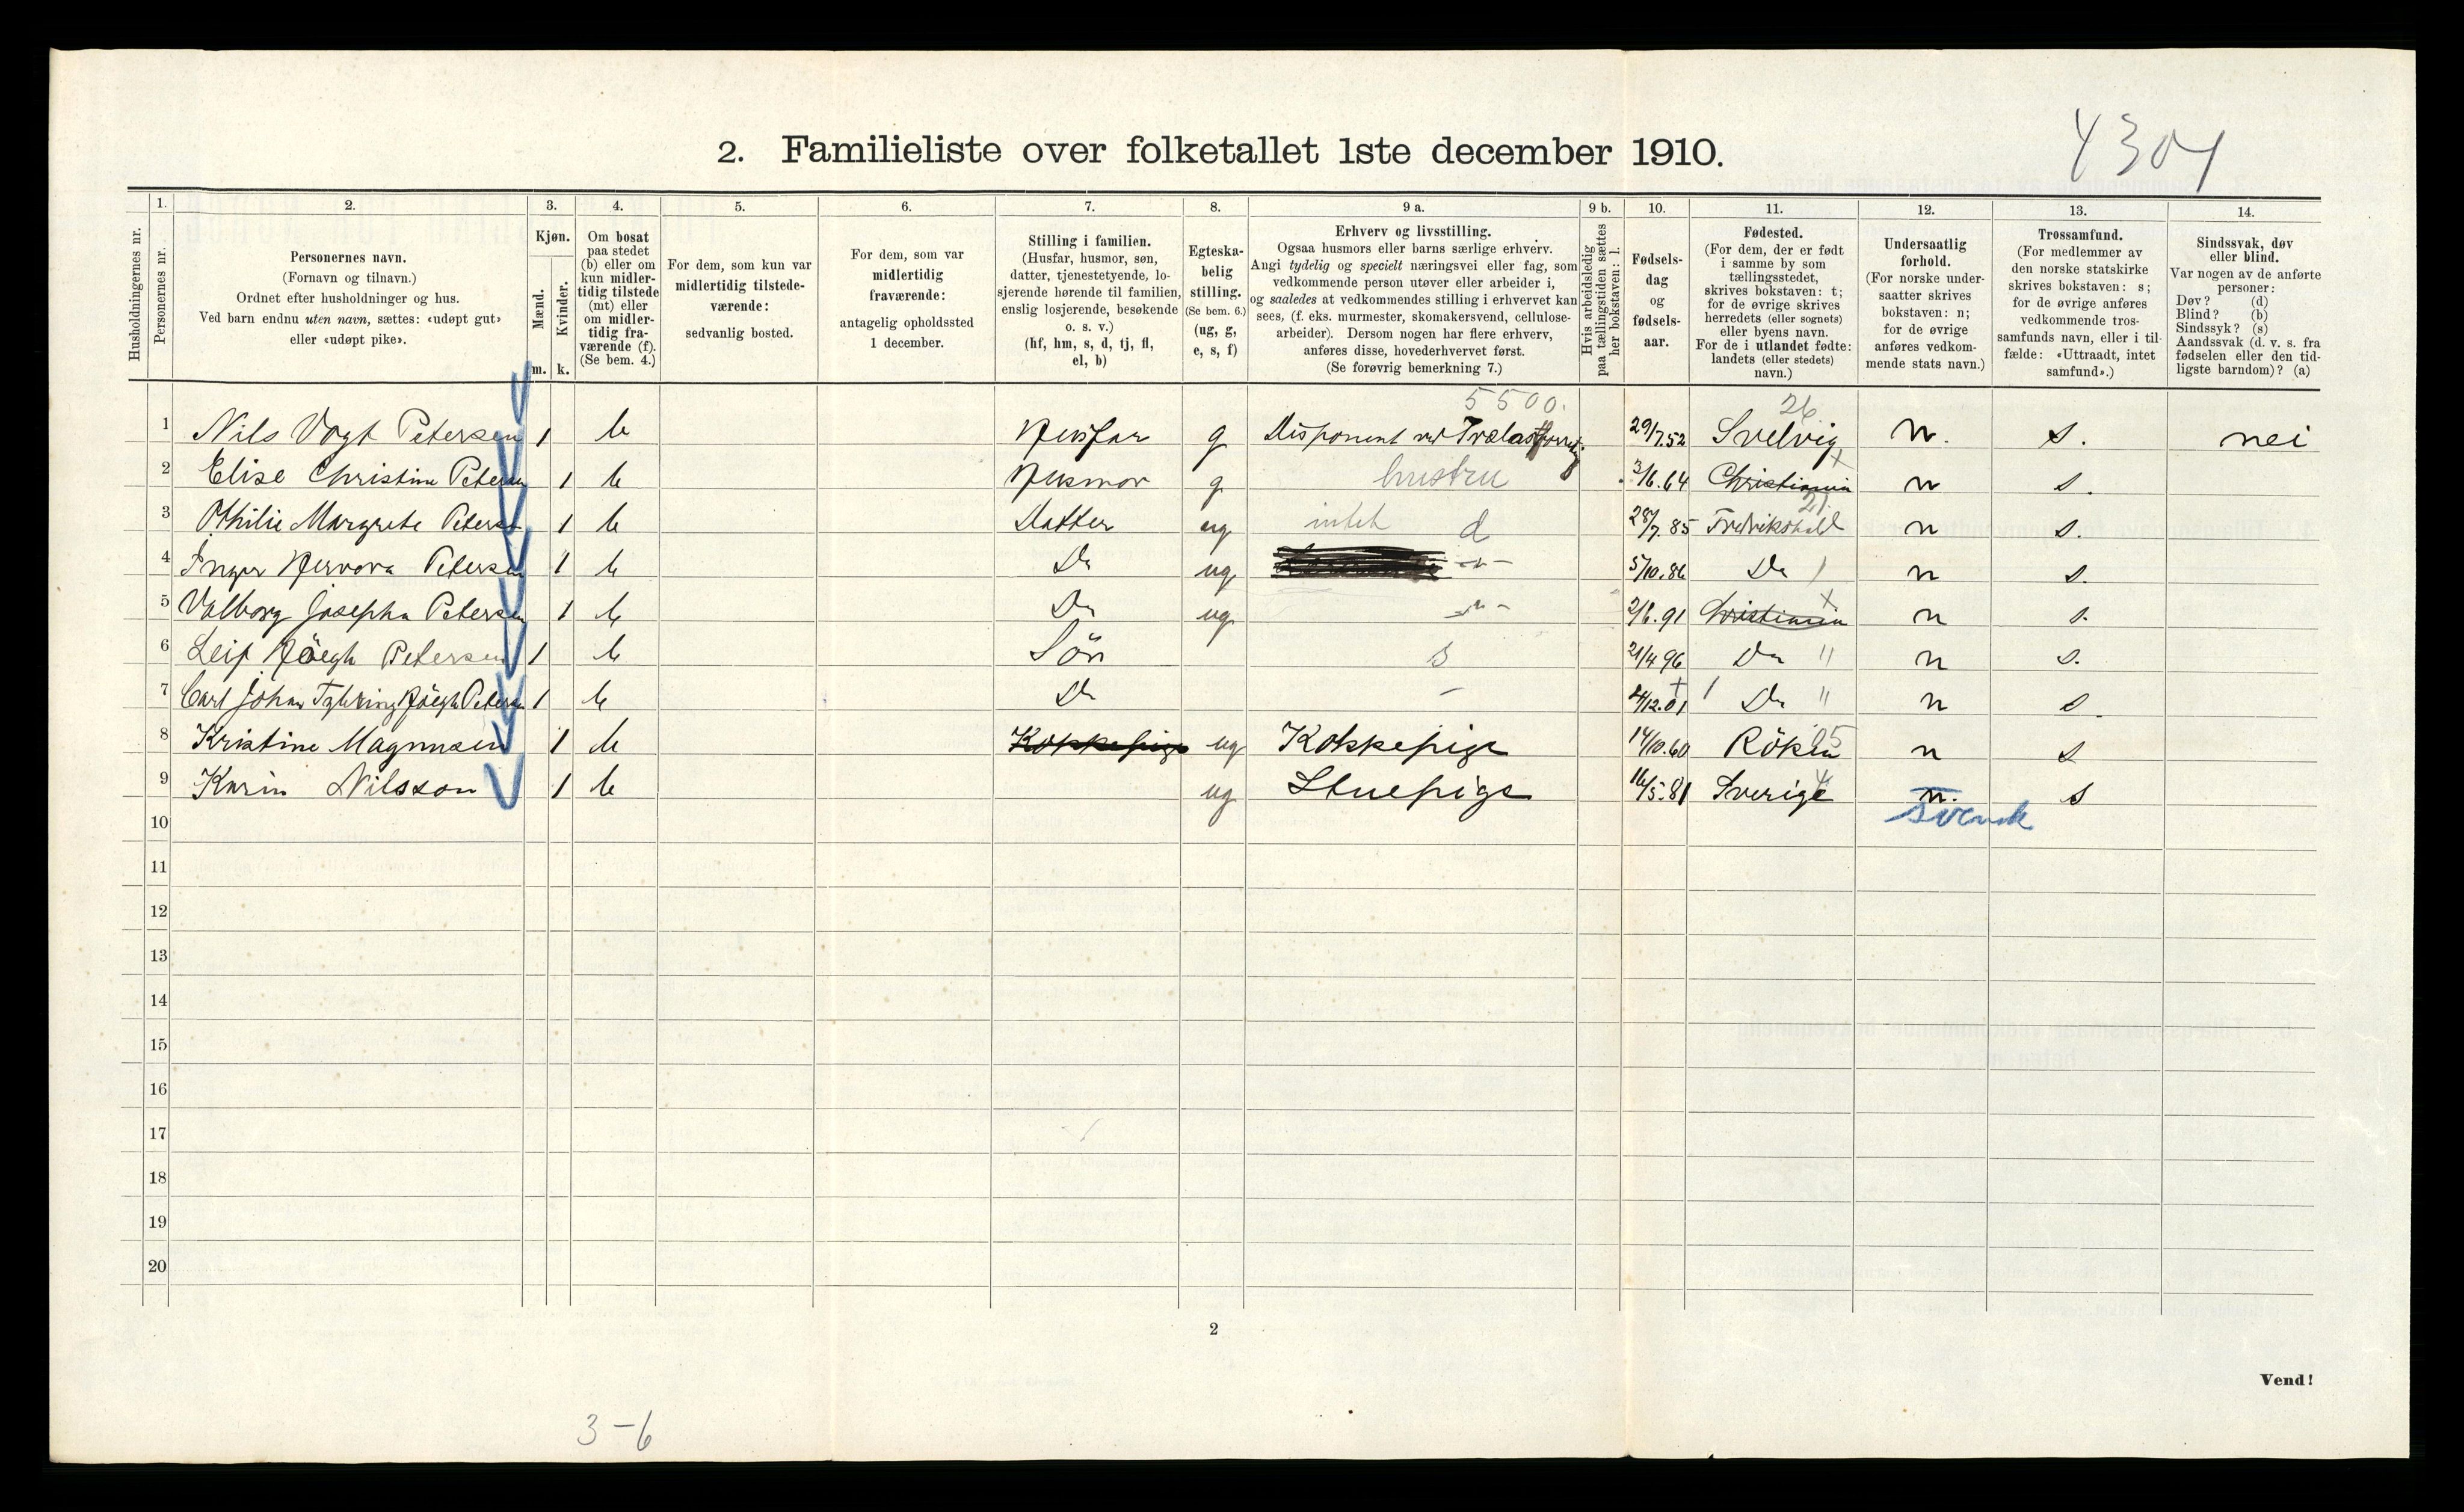 4304
2. Familieliste over folketallet 1ste december 1910.
1. 2. 3. 4. 5. 6. 7. 8. 9 a. 9 b. 10. 11. 12. 13. 14.
Husholdningernes nr.
Personernes nr.
Personernes navn.
(Fornavn og tilnavn.)
Ordnet efter husholdninger og hus.
Ved barn endnu uten navn, sættes: «udøpt gut»
eller «udøpt pike».
Kjøn.
Mænd.
Kvinder.
m. k.
Om bosat
paa stedet
(b) eller om
kun midler-
tidig tilstede
(mt) eller
om midler-
tidig fra-
værende (f).
(Se bem. 4.)
For dem, som kun var
midlertidig tilstede-
værende:
sedvanlig bosted.
For dem, som var
midlertidig
fraværende:
antagelig opholdssted
1 december.
Stilling i familien.
(Husfar, husmor, søn,
datter, tjenestetyende, lo-
sjerende hørende til familien,
enslig losjerende, besøkende
o. s. v.)
(hf, hm, s, d, tj, fl,
el, b)
Egteska-
belig
stilling.
(Se bem. 6.)
(ug, g,
e, s, f)
Erhverv og livsstilling.
Ogsaa husmors eller barns særlige erhverv.
Angi tydelig og specielt næringsvei eller fag, som
vedkommende person utøver eller arbeider i,
og saaledes at vedkommendes stilling i erhvervet kan
sees, (f. eks. murmester, skomakersvend, cellulose-
arbeider). Dersom nogen har flere erhverv,
anføres disse, hovederhvervet først.
(Se forøvrig bemerkning 7.)
Hvis arbeidsledig
paa tællingstiden sættes
her bokstaven: l.
Fødsels-
dag
og
fødsels-
aar.
Fødested.
(For dem, der er født
i samme by som
tællingsstedet,
skrives bokstaven: t;
for de øvrige skrives
herredets (eller sognets)
eller byens navn.
For de i utlandet fødte:
landets (eller stedets)
navn.)
Undersaatlig
forhold.
(For norske under-
saatter skrives
bokstaven: n;
for de øvrige
anføres vedkom-
mende stats navn.)
Trossamfund.
(For medlemmer av
den norske statskirke
skrives bokstaven: s;
for de øvrige anføres
vedkommende tros-
samfunds navn, eller i til-
fælde: «Uttraadt, intet
samfund».)
Sindssvak, døv
eller blind.
Var nogen av de anførte
personer:
Døv? (d)
Blind? (b)
Sindssyk? (s)
Aandssvak (d. v. s. fra
fødselen eller den tid-
ligste barndom)? (a)
5500. 26
1 Nils Vogt Petersen 1 b Husfar g Disponent ved Trælastforretn. 29/7.52 Svelvig n. s. nei
2 Elise Christine Petersen 1 b Husmor g hustru 3/6.64 Christiania x n s.
21
3 Othilie Margrete Petersen 1 b Datter ug intet d 28/7.85 Fredrikshald n s.
4 Inger Hervora Petersen 1 b Do ug -"- 5/10.86 Do n s.
5 Valborg Josepha Petersen 1 b Do ug -"- 2/6.91 Christiania x n s.
6 Leif Höegh Petersen 1 b Sön s 21/4 96 Do " n s.
7 Carl Johan Höegh Petersen 1 b Do - 4/12.01 Do " n s.
8 Kristine Magnusen 1 b Kokkepige ug Kokkepige 14/10.60 Röken 05 n s
9 Karin Nilsson 1 b ug Stuepige 16/5.81 Sverige 4 n. s
svensk
10
11
12
13
14
15
16
17
18
19
20
2
Vend!
3-6